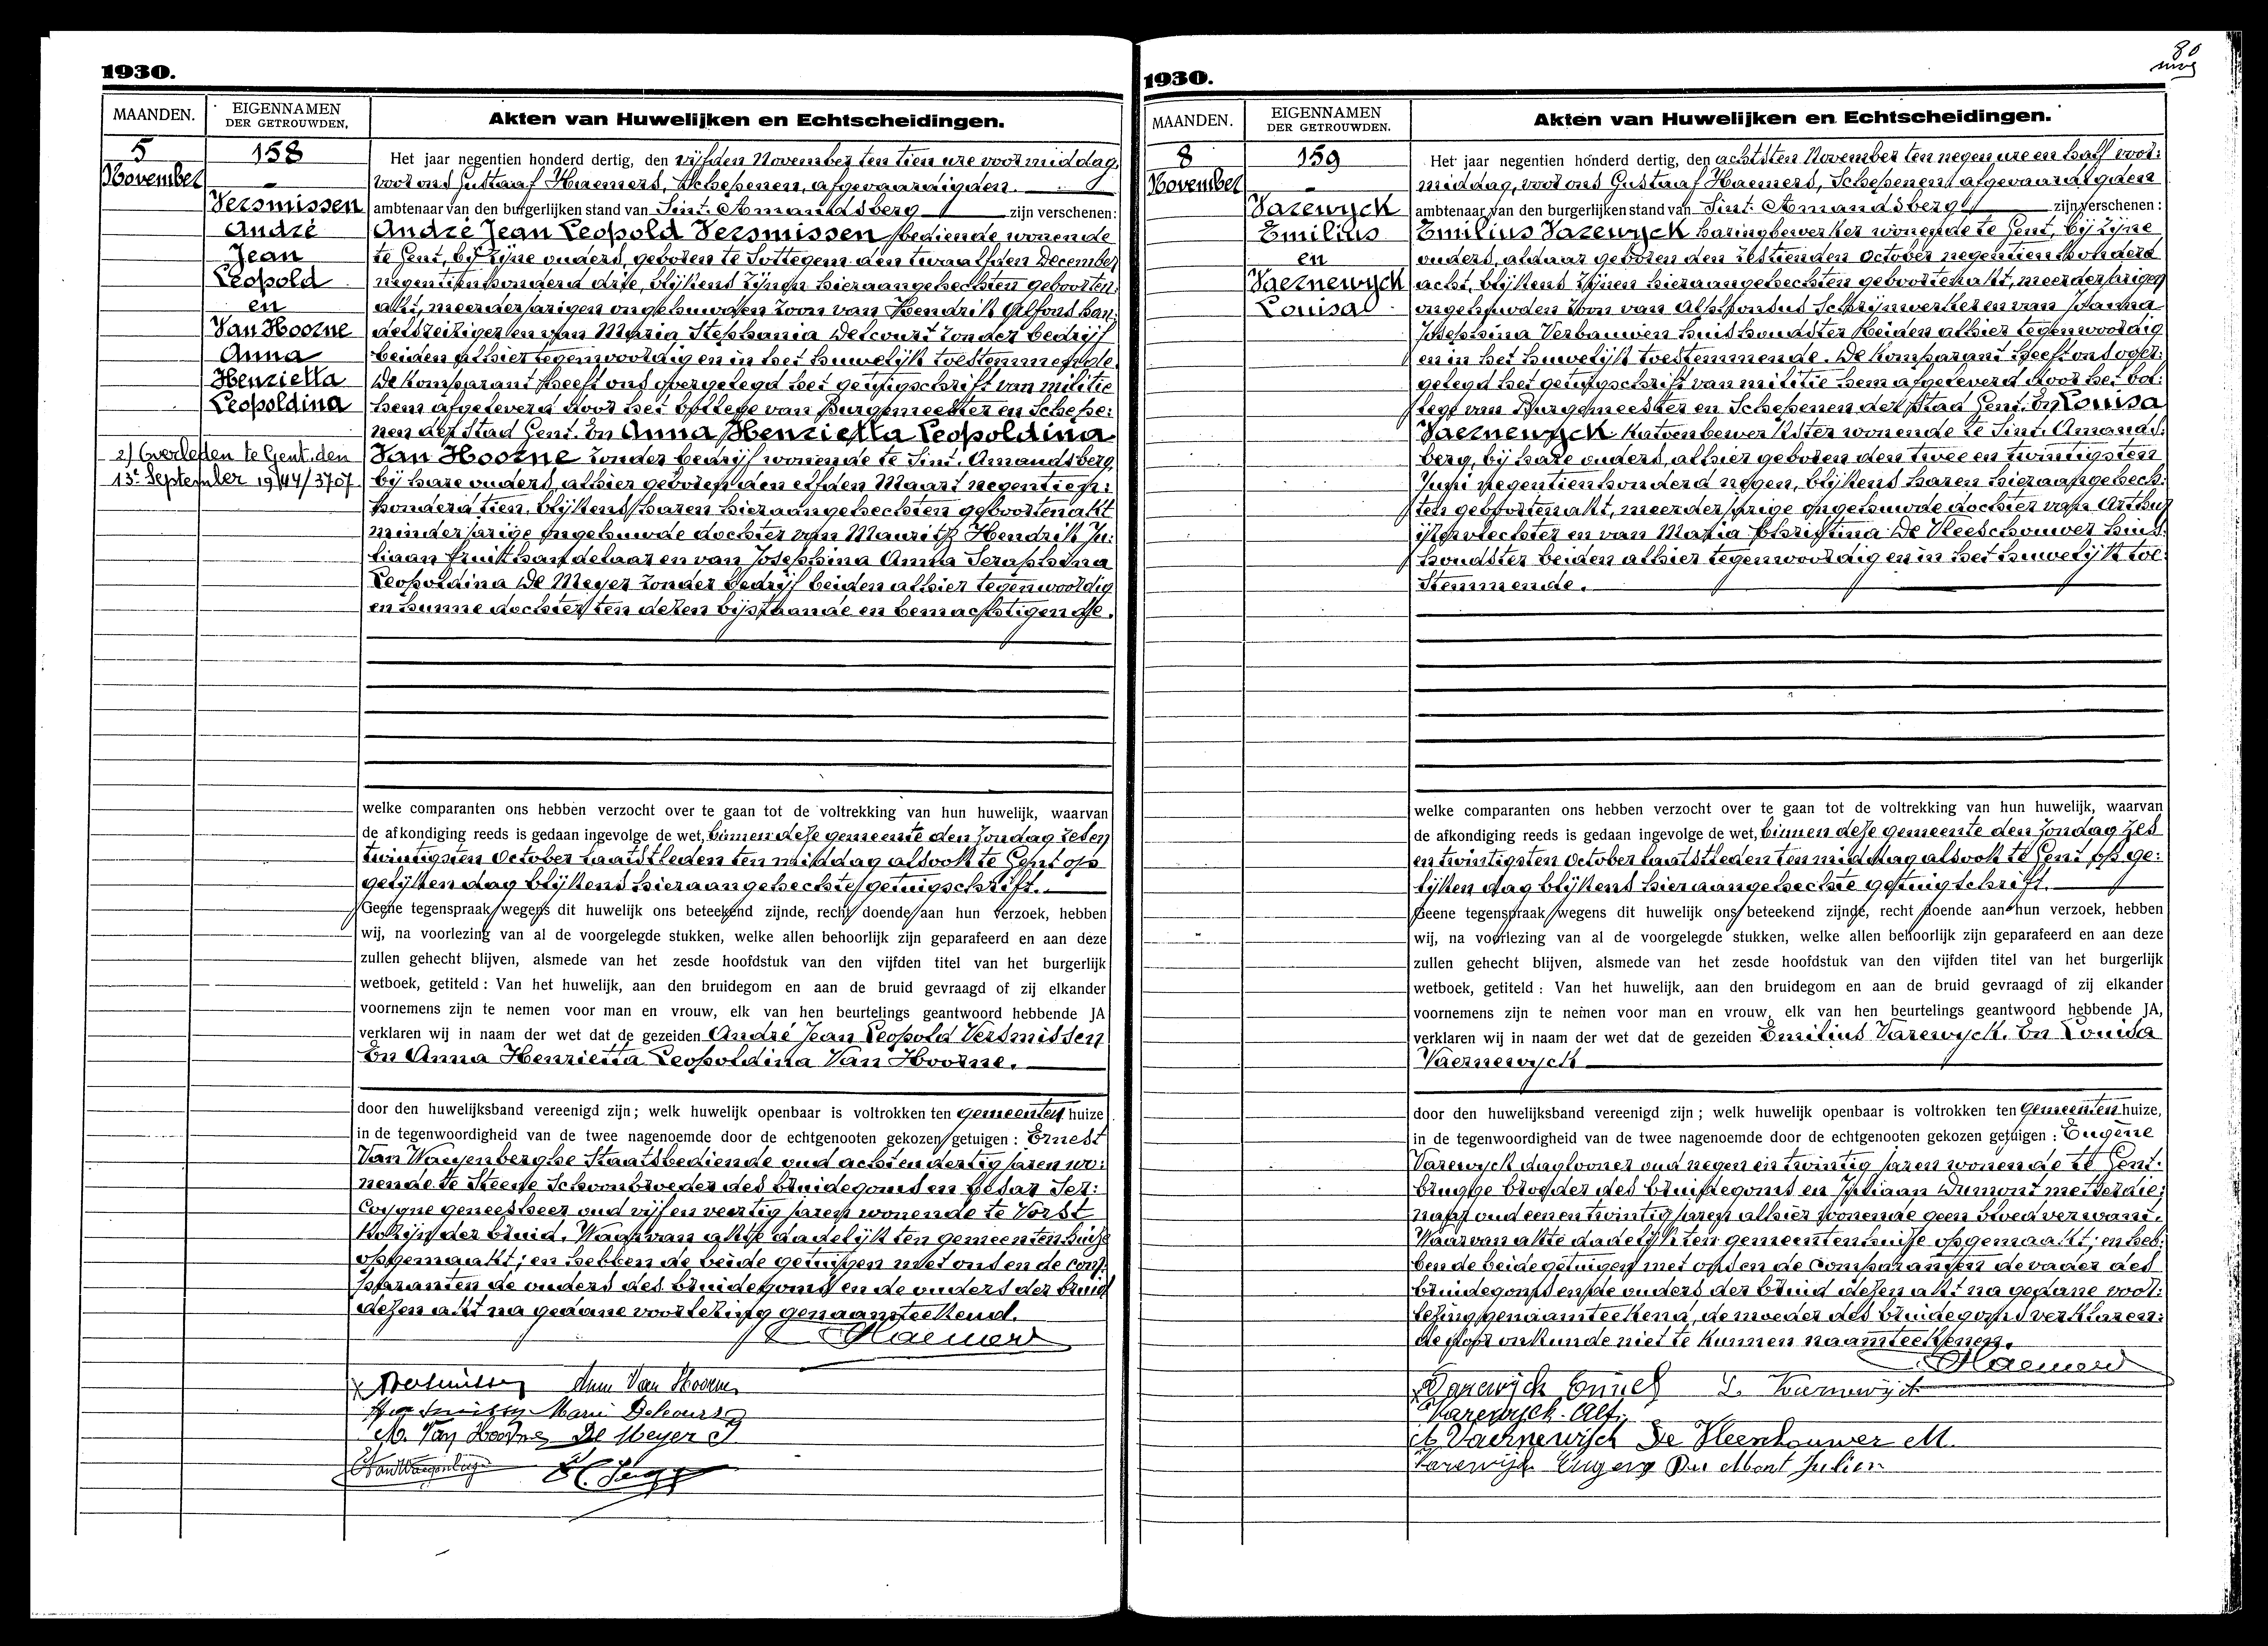 1930.
MAANDEN.
EIGENNAMEN
DER GETROUWDEN.
Akten van Huwelijken en Echtscheidingen.
5
November
158
Versmissen
André
Jean
Leopold
en
Van Hoorne
Anna
Henrietta
Leopoldina
2) Overleden te Gent, den
13e September 1944/3707
Het jaar negentien honderd dertig, den vijfden November ten tien ure voormiddag,
voor ons Gustaaf Haemers, Schepenen, afgevaardigden
ambtenaar van den burgerlijken stand van Sint-Amandsberg zijn verschenen:
André Jean Leopold Versmissen bediende wonende
te Gent, bij zijne ouders, geboren te Sottegem den twaalfden December
negentienhonderd drie, blijkens zijnen hieraangehechten geboorten:
akt, meerderjarigen ongehuwden zoon van Hendrik Alfons han:
delsreiziger en van Maria Stephania Delcourt zonder bedrijf
beiden alhier tegenwoordig en in het huwelijk toestemmende.
De komparant heeft ons overgelegd het getuigschrift van militie
hem afgeleverd door het College van Burgemeester en Schepe:
nen der Stad Gent. En Anna Henrietta Leopoldina
Van Hoorne zonder bedrijf wonende te Sint. Amandsberg,
bij hare ouders, alhier geboren den elfden Maart negentien:
honderd tien, blijkens haren hieraangehechten geboortenakt
minderjarige ongehuwde dochter van Maurits Hendrik Ju:
liaan fruithandelaar en van Josephina Anna Seraphina
Leopoldina De Meyer zonder bedrijf beiden alhier tegenwoordig
en hunne dochter ten dezen bijstaande en bemachtigende.
welke comparanten ons hebben verzocht over te gaan tot de voltrekking van hun huwelijk, waarvan
de afkondiging reeds is gedaan ingevolge de wet, binnen deze gemeente den Zondag zes en
twintigsten October laatstleden ten middag alsook te Gent op
gelijken dag blijkens hieraangehechte getuigschrift.
Geene tegenspraak wegens dit huwelijk ons beteekend zijnde, recht doende aan hun verzoek, hebben
wij, na voorlezing van al de voorgelegde stukken, welke allen behoorlijk zijn geparafeerd en aan deze
zullen gehecht blijven, alsmede van het zesde hoofdstuk van den vijfden titel van het burgerlijk
wetboek, getiteld : Van het huwelijk, aan den bruidegom en aan de bruid gevraagd of zij elkander
voornemens zijn te nemen voor man en vrouw, elk van hen beurtelings geantwoord hebbende JA
verklaren wij in naam der wet dat de gezeiden André Jean Leopold Versmissen
En Anna Henrietta Leopoldina Van Hoorne.
door den huwelijksband vereenigd zijn ; welk huwelijk openbaar is voltrokken ten Gemeenten huize
in de tegenwoordigheid van de twee nagenoemde door de echtgenooten gekozen getuigen : Ernest
Van Waeyenberghe Staatsbediende oud achtendertig jaren wo:
nende te Schoonbroeder des bruidegoms en Cesar
geneesheer oud vijfenveertig jaren wonende te Vorst
Kozijn der bruid. Waarvan akte dadelijk ten gemeentenhuize
opgemaakt; en hebben de beide getuigen met ons en de com:
paranten de ouders des bruidegoms en de ouders der bruid
dezen akt na gedane voorlezing genaamteekend.
Haemers
Versmissen Anna Van Hoorne
Versmissen Marie Delcourt
M. Van Hoorne De Meyer J
E Van Waeyenberghe
80
1930.
MAANDEN.
EIGENNAMEN
DER GETROUWDEN.
Akten van Huwelijken en Echtscheidingen.
8
November
159
Varewyck
Emilius
en
Vaernewyck
Louisa
Het jaar negentien honderd dertig, den achtsten November ten negen ure en half voor:
middag, voor ons Gustaaf Haemers, Schepenen afgevaardigden
ambtenaar van den burgerlijken stand van Sint. Amandsberg zijn verschenen :
Emilius Varewyck haringbewerker wonende te Gent, bij zijne
ouders, aldaar geboren den zestienden October negentienhonderd
acht, blijkens zijnen hieraangehechten geboortenakt, meerderjarigen
ongehuwden zoon van Alphonsus Schrijnwerker en van Joanna
Josephina Verbauwen huishoudster beiden alhier tegenwoordig
en in het huwelijk toestemmende. De komparant heeft ons over:
gelegd het getuigschrift van militie hem afgeleverd door het Col:
lege van Burgemeester en Schepenen der Stad Gent. En Louisa
Vaernewyck Katoenbewerkster wonende te Sint. Amands:
berg, bij hare ouders, alhier geboren den twee en twintigsten
Juni negentienhonderd negen, blijkens haren hieraangehech:
ten geboortenakt, meerderjarige ongehuwde dochter van Arthur
ijzervlechter en van Maria Christina De Vleeschouwer huis:
houdster beiden alhier tegenwoordig en in het huwelijk toe:
stemmende.
welke comparanten ons hebben verzocht over te gaan tot de voltrekking van hun huwelijk, waarvan
de afkondiging reeds is gedaan ingevolge de wet, binnen deze gemeente den Zondag zes
en twintigsten October laatstleden ten middag alsook te Gent op ge:
lijken dag blijkens hieraangehechte getuigschrift.
Geene tegenspraak wegens dit huwelijk ons beteekend zijnde, recht doende aan hun verzoek, hebben
wij, na voorlezing van al de voorgelegde stukken, welke allen behoorlijk zijn geparafeerd en aan deze
zullen gehecht blijven, alsmede van het zesde hoofdstuk van den vijfden titel van het burgerlijk
wetboek, getiteld : Van het huwelijk, aan den bruidegom en aan de bruid gevraagd of zij elkander
voornemens zijn te nemen voor man en vrouw, elk van hen beurtelings geantwoord hebbende JA,
verklaren wij in naam der wet dat de gezeiden Emilius Varewyck. En Louisa
Vaernewyck
door den huwelijksband vereenigd zijn ; welk huwelijk openbaar is voltrokken ten Gemeenten huize,
in de tegenwoordigheid van de twee nagenoemde door de echtgenooten gekozen getuigen : Eugène
Varewyck daglooner oud negen en twintig jaren wonende te Gent.
brugge broeder des bruidegoms en Juliaan Dumont metserdie:
naar oud eenen twintig jaren alhier wonende geen bloedverwant.
Waarvan akte dadelijk ten gemeentenhuize opgemaakt; en heb:
ben de beide getuigen met ons en de Comparanten de vader des
bruidegoms en de ouders der bruid dezen akt na gedane voor:
lezing genaamteekend, de moeder des bruidegoms verklaren:
de door onkunde niet te kunnen naamteekenen.
Haemers
Varewyck Emiel L. Vaernewyck
Varewyck. Alf.
A Vaernewijck De Vleeschouwer M.
Varewyck Eugeen Du Mont Julien